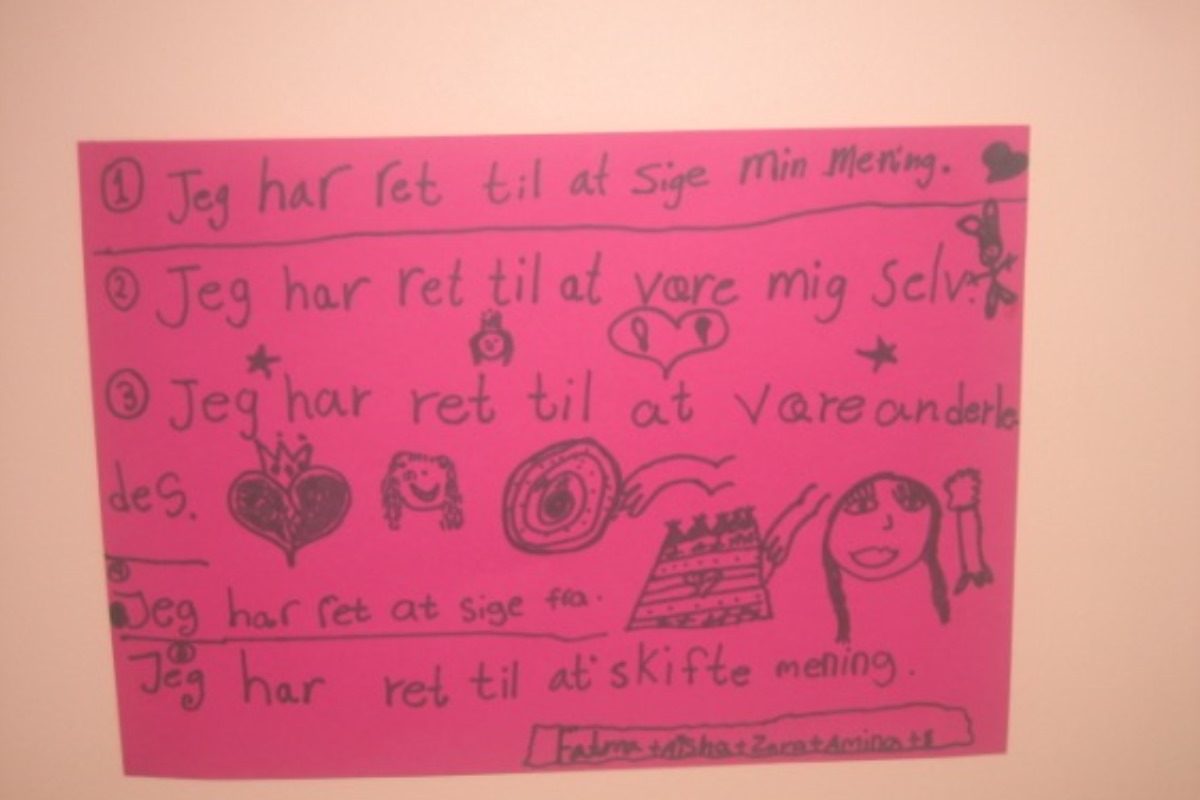 ① Jeg har ret til at sige min mening.
② Jeg har ret til at være mig selv.
③ Jeg har ret til at være anderle
des.
④
Jeg har ret at sige fra.
⑤
Jeg har ret til at skifte mening.
Fatma + Aisha + Zara + Amina +